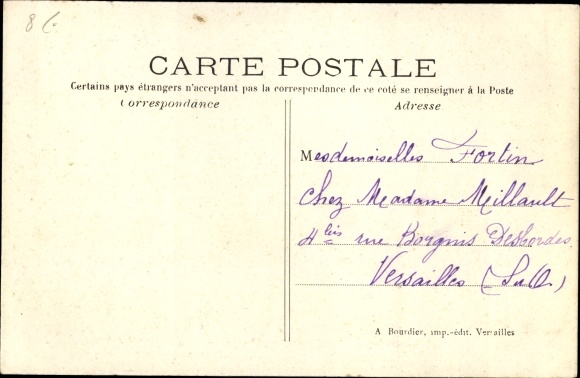 8 6
CARTE POSTALE
Certains pays étrangers n'acceptant pas la correspondance de ce coté se renseigner à la Poste
Correspondance
Adresse
Mesdemoiselles Fortin
Chez Madame Meillault
4 bis rue Borgnis Desbordes
Versailles (S et O)
A Bourdier, imp.-édit. Versailles